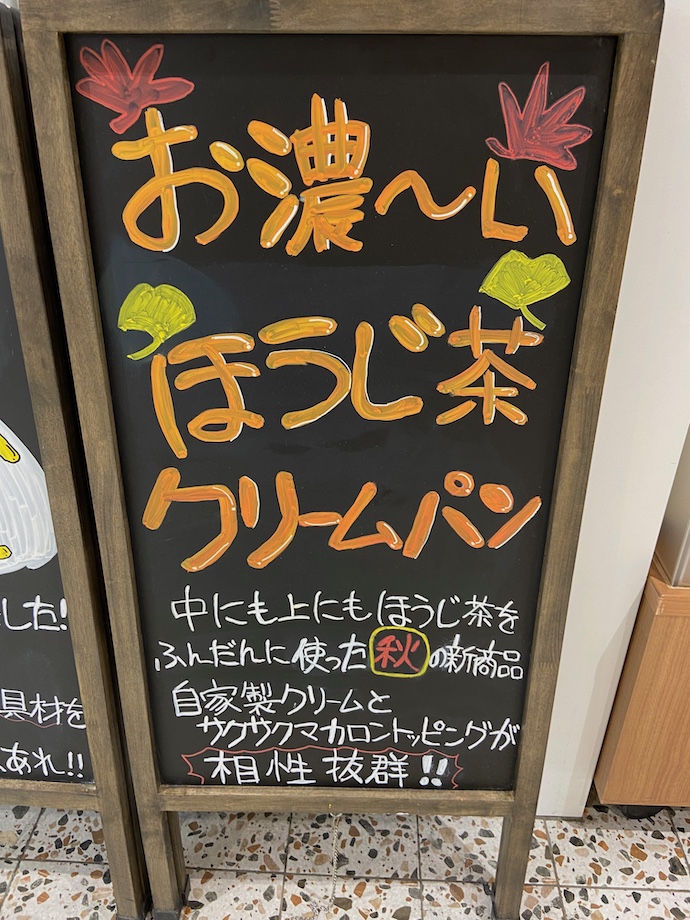 お濃〜い
ほうじ茶
クリームパン
中にも上にもほうじ茶を
ふんだんに使った秋の新商品
自家製クリームと
サクサクマカロントッピングが
相性抜群!!
した!
具材を
あれ!!